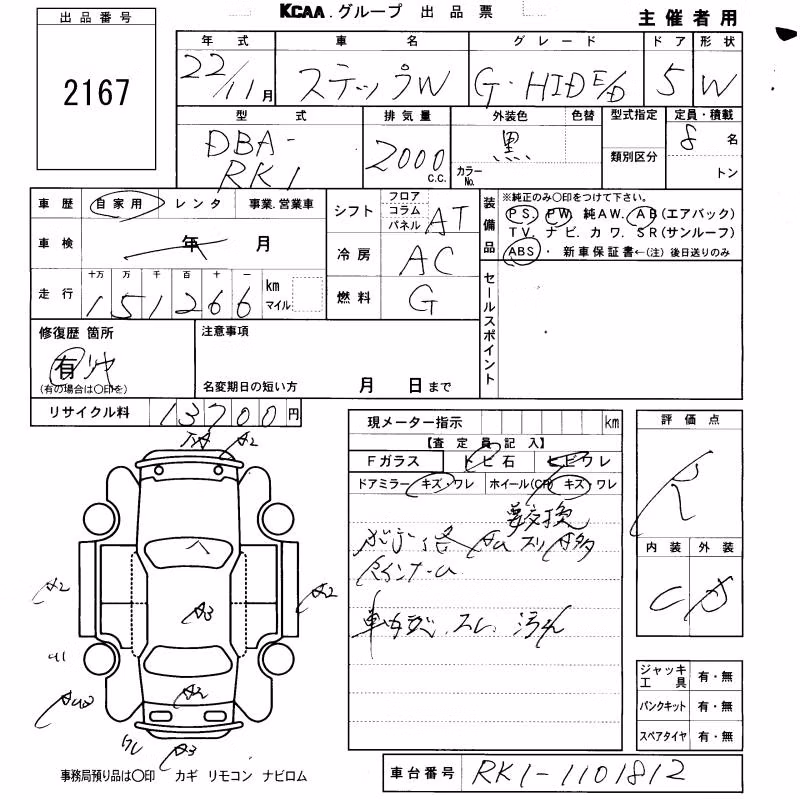 KCAA.グループ 出品票 主催者用
出品番号
2167
年式 車名 グレード ドア 形状
22/11月 ステップW G・HIDE/D 5 W
型式 排気量 外装色 色替 型式指定 定員・積載
DBA-RK1 2000c.c. 黒 カラーNo. 類別区分 8名
トン
車歴 自家用 レンタ 事業.営業車
車検 年 月
走行 十万 万 千 百 十 一
151266 km マイル
シフト フロア コラム パネル AT
冷房 AC
燃料 G
装備品 ※純正のみ○印をつけて下さい。
PS. PW. 純AW. AB(エアバック)
TV. ナビ. カワ. SR(サンルーフ)
ABS・ 新車保証書←(注)後日送りのみ
セールスポイント
修復歴 箇所
有
(有の場合は○印を)
注意事項
名変期日の短い方 月 日まで
リサイクル料 13700円
現メーター指示 km
【査定員記入】
Fガラス トビ石 ヒビワレ
ドアミラー キズ・ワレ ホイール(CP) キズ・ワレ
要交換
車内 スレ 汚れ
評価点
R
内装 外装
C
A2
A2
A2
A3
A2
A3
U1
ワレ
ジャッキ工具 有・無
パンクキット 有・無
スペアタイヤ 有・無
事務局預り品は○印 カギ リモコン ナビロム
車台番号 RK1-1101812